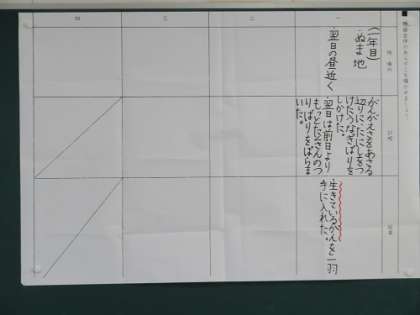 一
(一年目)
・ぬま地
・翌日の昼近く
がんがえさをあさる
辺りにたにしをつ
けたうなぎばりを
しかけた。
・翌日は前日より
もっとたくさんのつ
りばりをばらま
いた。
・生きているがんを一羽
手に入れた。
二
三
四